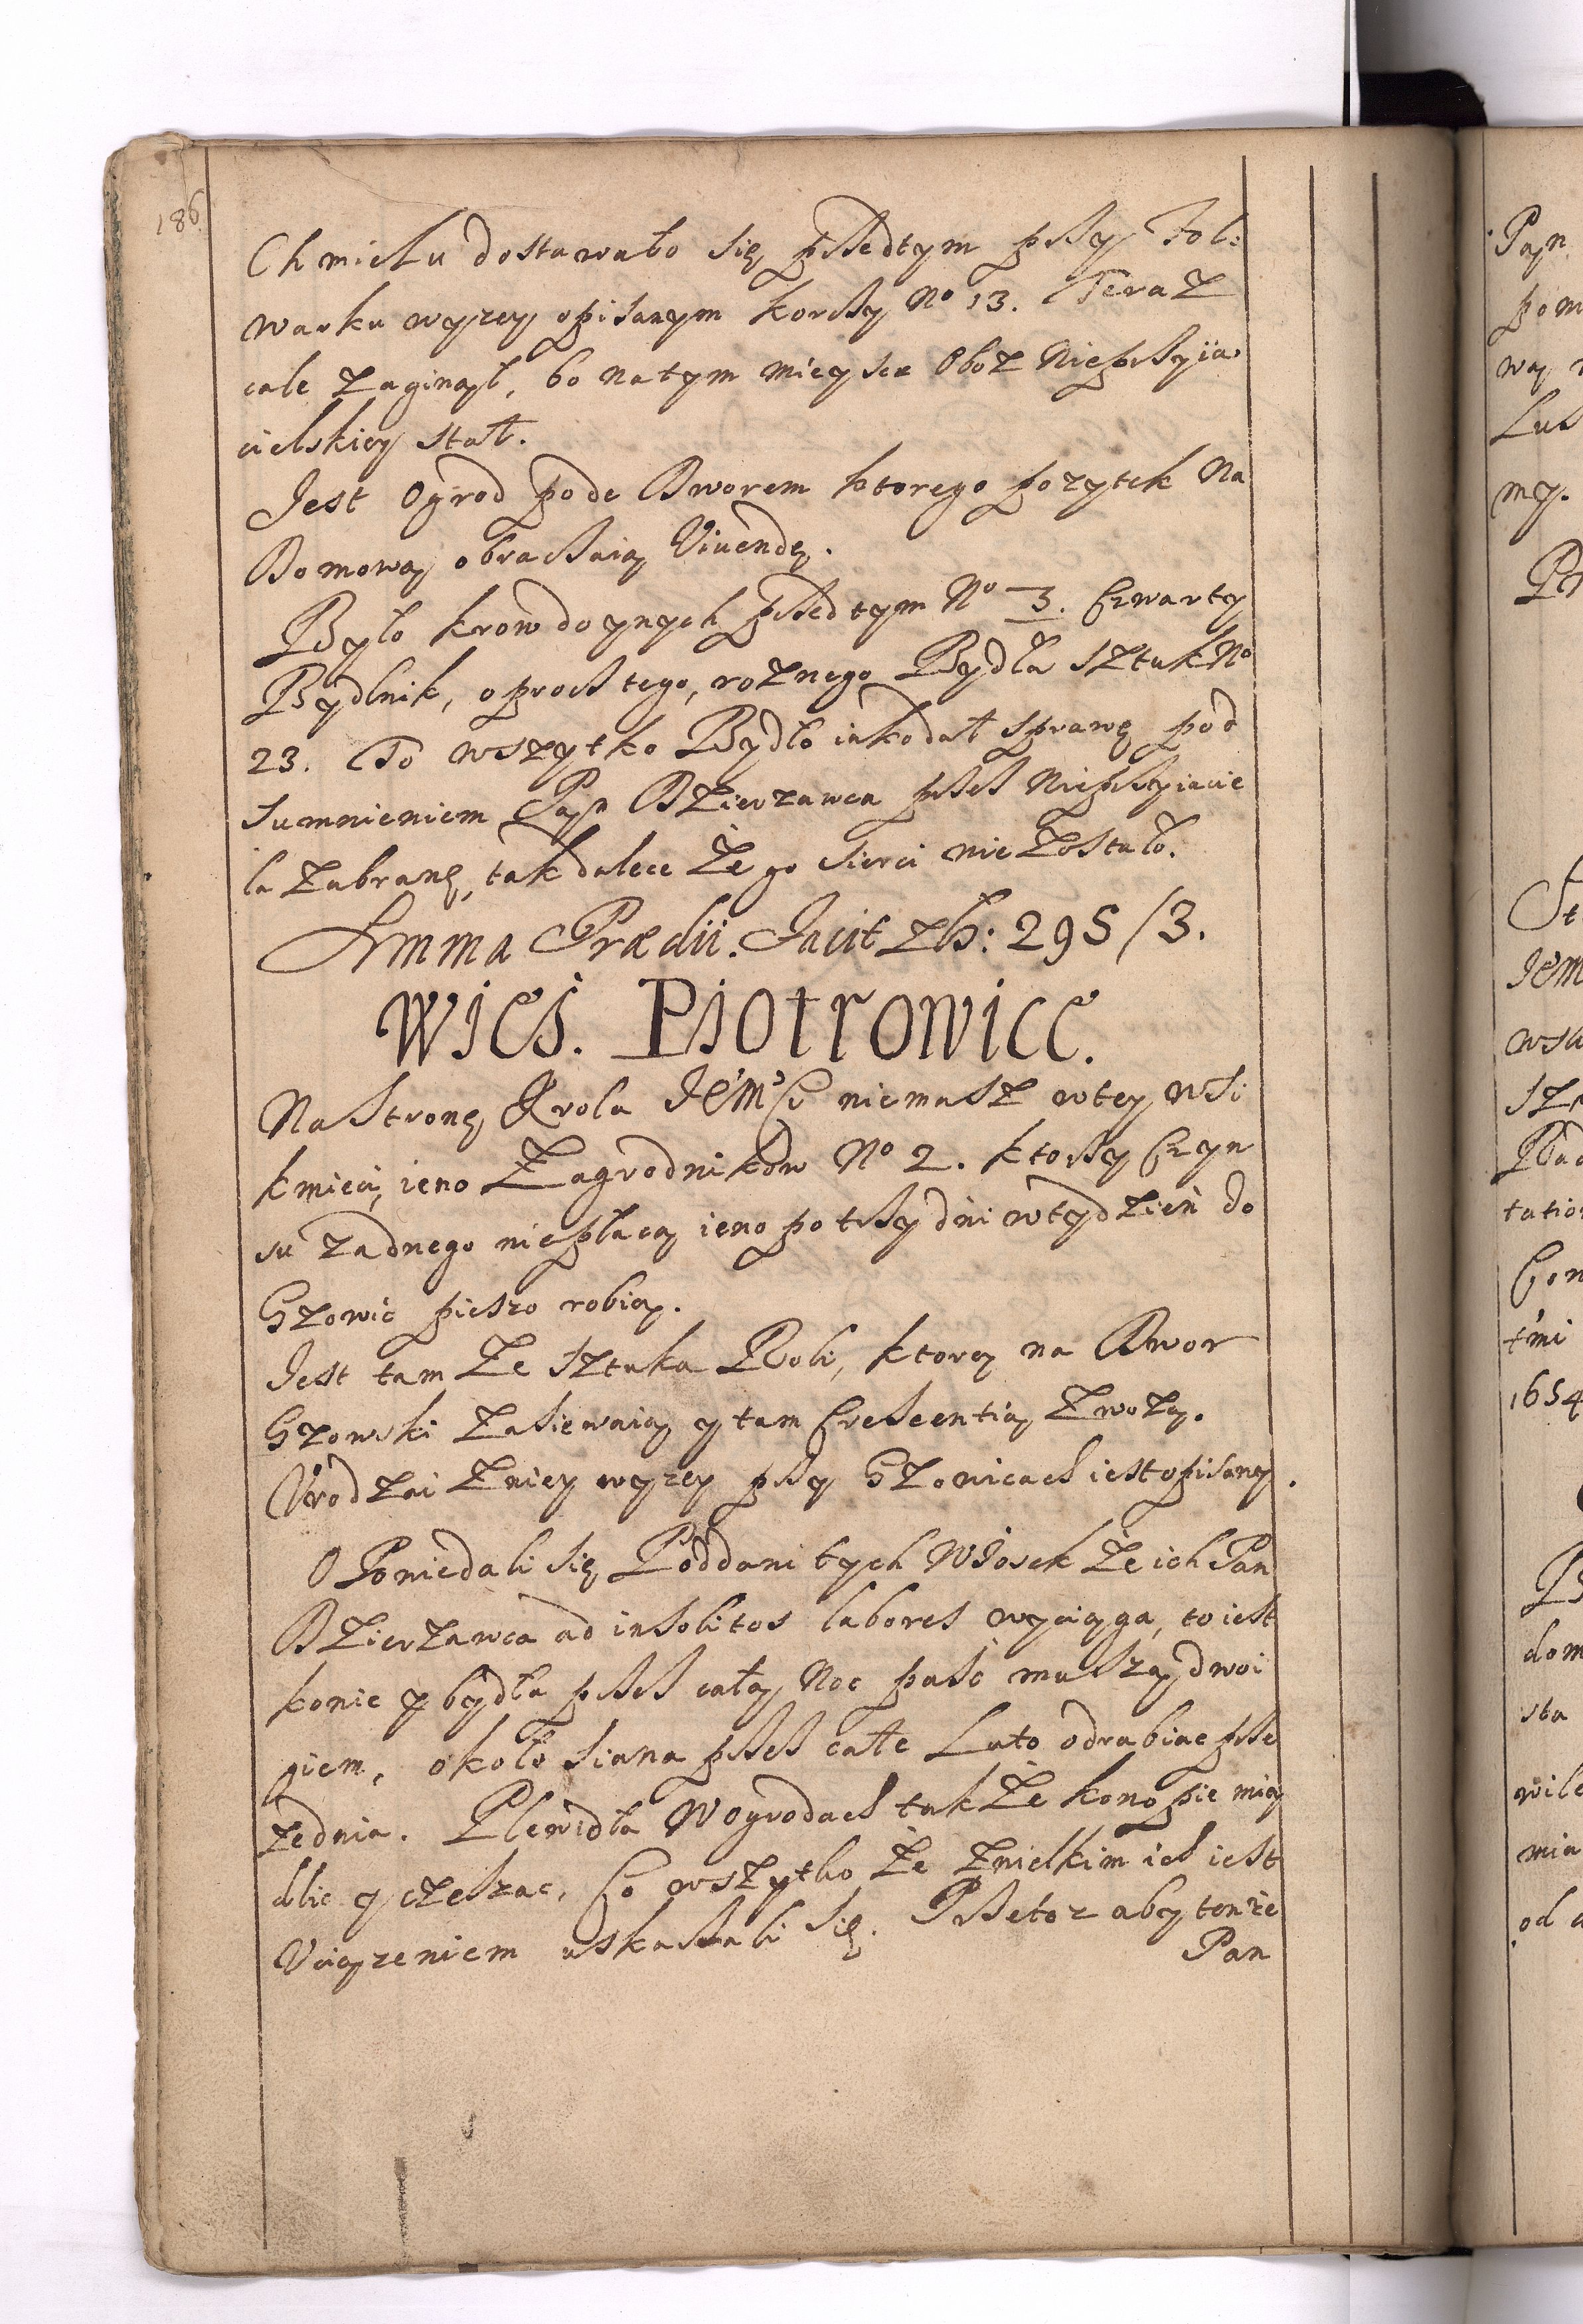 186.
Chmielu dostawało się przedtym przy Fol:
warku wyzey opisanym korcy No 13. Teraz
cale zaginął, bo na tym mieyscu Oboz Nieprzyia
cielskiey stał.
Jest Ogrod pode Dworem ktorego pozytek Na
Domową obracaią Viuendę.
Było krow doynych przedtym No 3. Czwarty
Bydlnik, oprocz tego, roznego Bydła sztuk No
23. To wszytko Bydło iako dał sprawę pod
sumnieniem Pan Dzierzawca przez Nieprzyiacie
la zabranę, tak dalece że go sierci nie zostało.
Summa Prædii. Facit zł: 295/3.
Wieś. Piotrowice.
Na Stronę Krola JeMści niemasz w tey wsi
kmieci, ieno Zagrodnikow No 2. ktorzy Czyn
su zadnego niepłacą ieno po trzy dni w tydzień do
Gzowic pieszo robią.
Jest tam że sztuka Roli, ktorą na Dwor
Gzowski zasiewaią y tam Crescentią zwożą.
Vrodzai z niey wyzey przy Gzowicach iest opisany.
Opowiedali się Poddani tych Włosek że ich Pan
Dzierzawca ad insolitos labores wyciąga, to iest
konie y bydła przez całą Noc paść muszą dwoi
giem, około siana przez całe Lato odrabiac prze
zednia. Plewidła W ogrodach także konopie mię
dlic y czeszac, Co wszytko że z wielkim ich iest
Vciązeniem uskarzali się. Przetoz aby tenże
Pan
Pan
pom
wą
Lus
my.
JeM
wsa
tatio
Con
1654
dom
sta
wile
mia
od